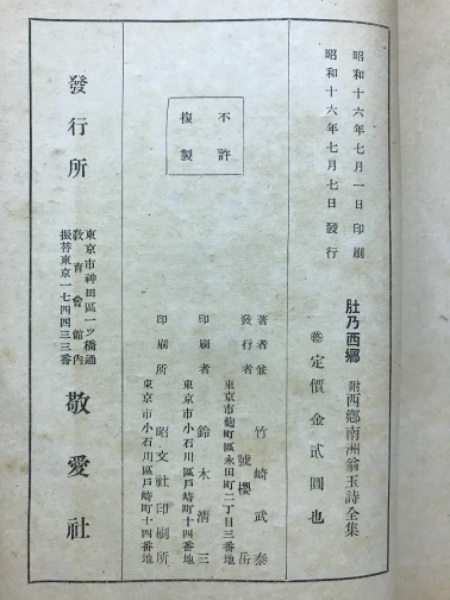 昭和十六年七月一日印刷
昭和十六年七月七日發行
肚乃西郷 附西郷南洲翁玉詩全集
定價金貳圓也
不許
複製
著者兼
發行者
竹崎武泰
號櫻岳
東京市麹町區永田町二丁目三番地
印刷者 鈴木清三
東京市小石川區戸崎町十四番地
印刷所 昭文社印刷所
東京市小石川區戸崎町十四番地
發行所
東京市神田區一ツ橋通
敎育會館內
振替東京一七四四三三番
敬愛社